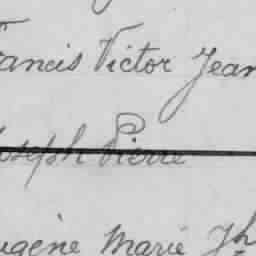 Francis Victor Jean
Joseph Pierre
Eugène Marie Jh